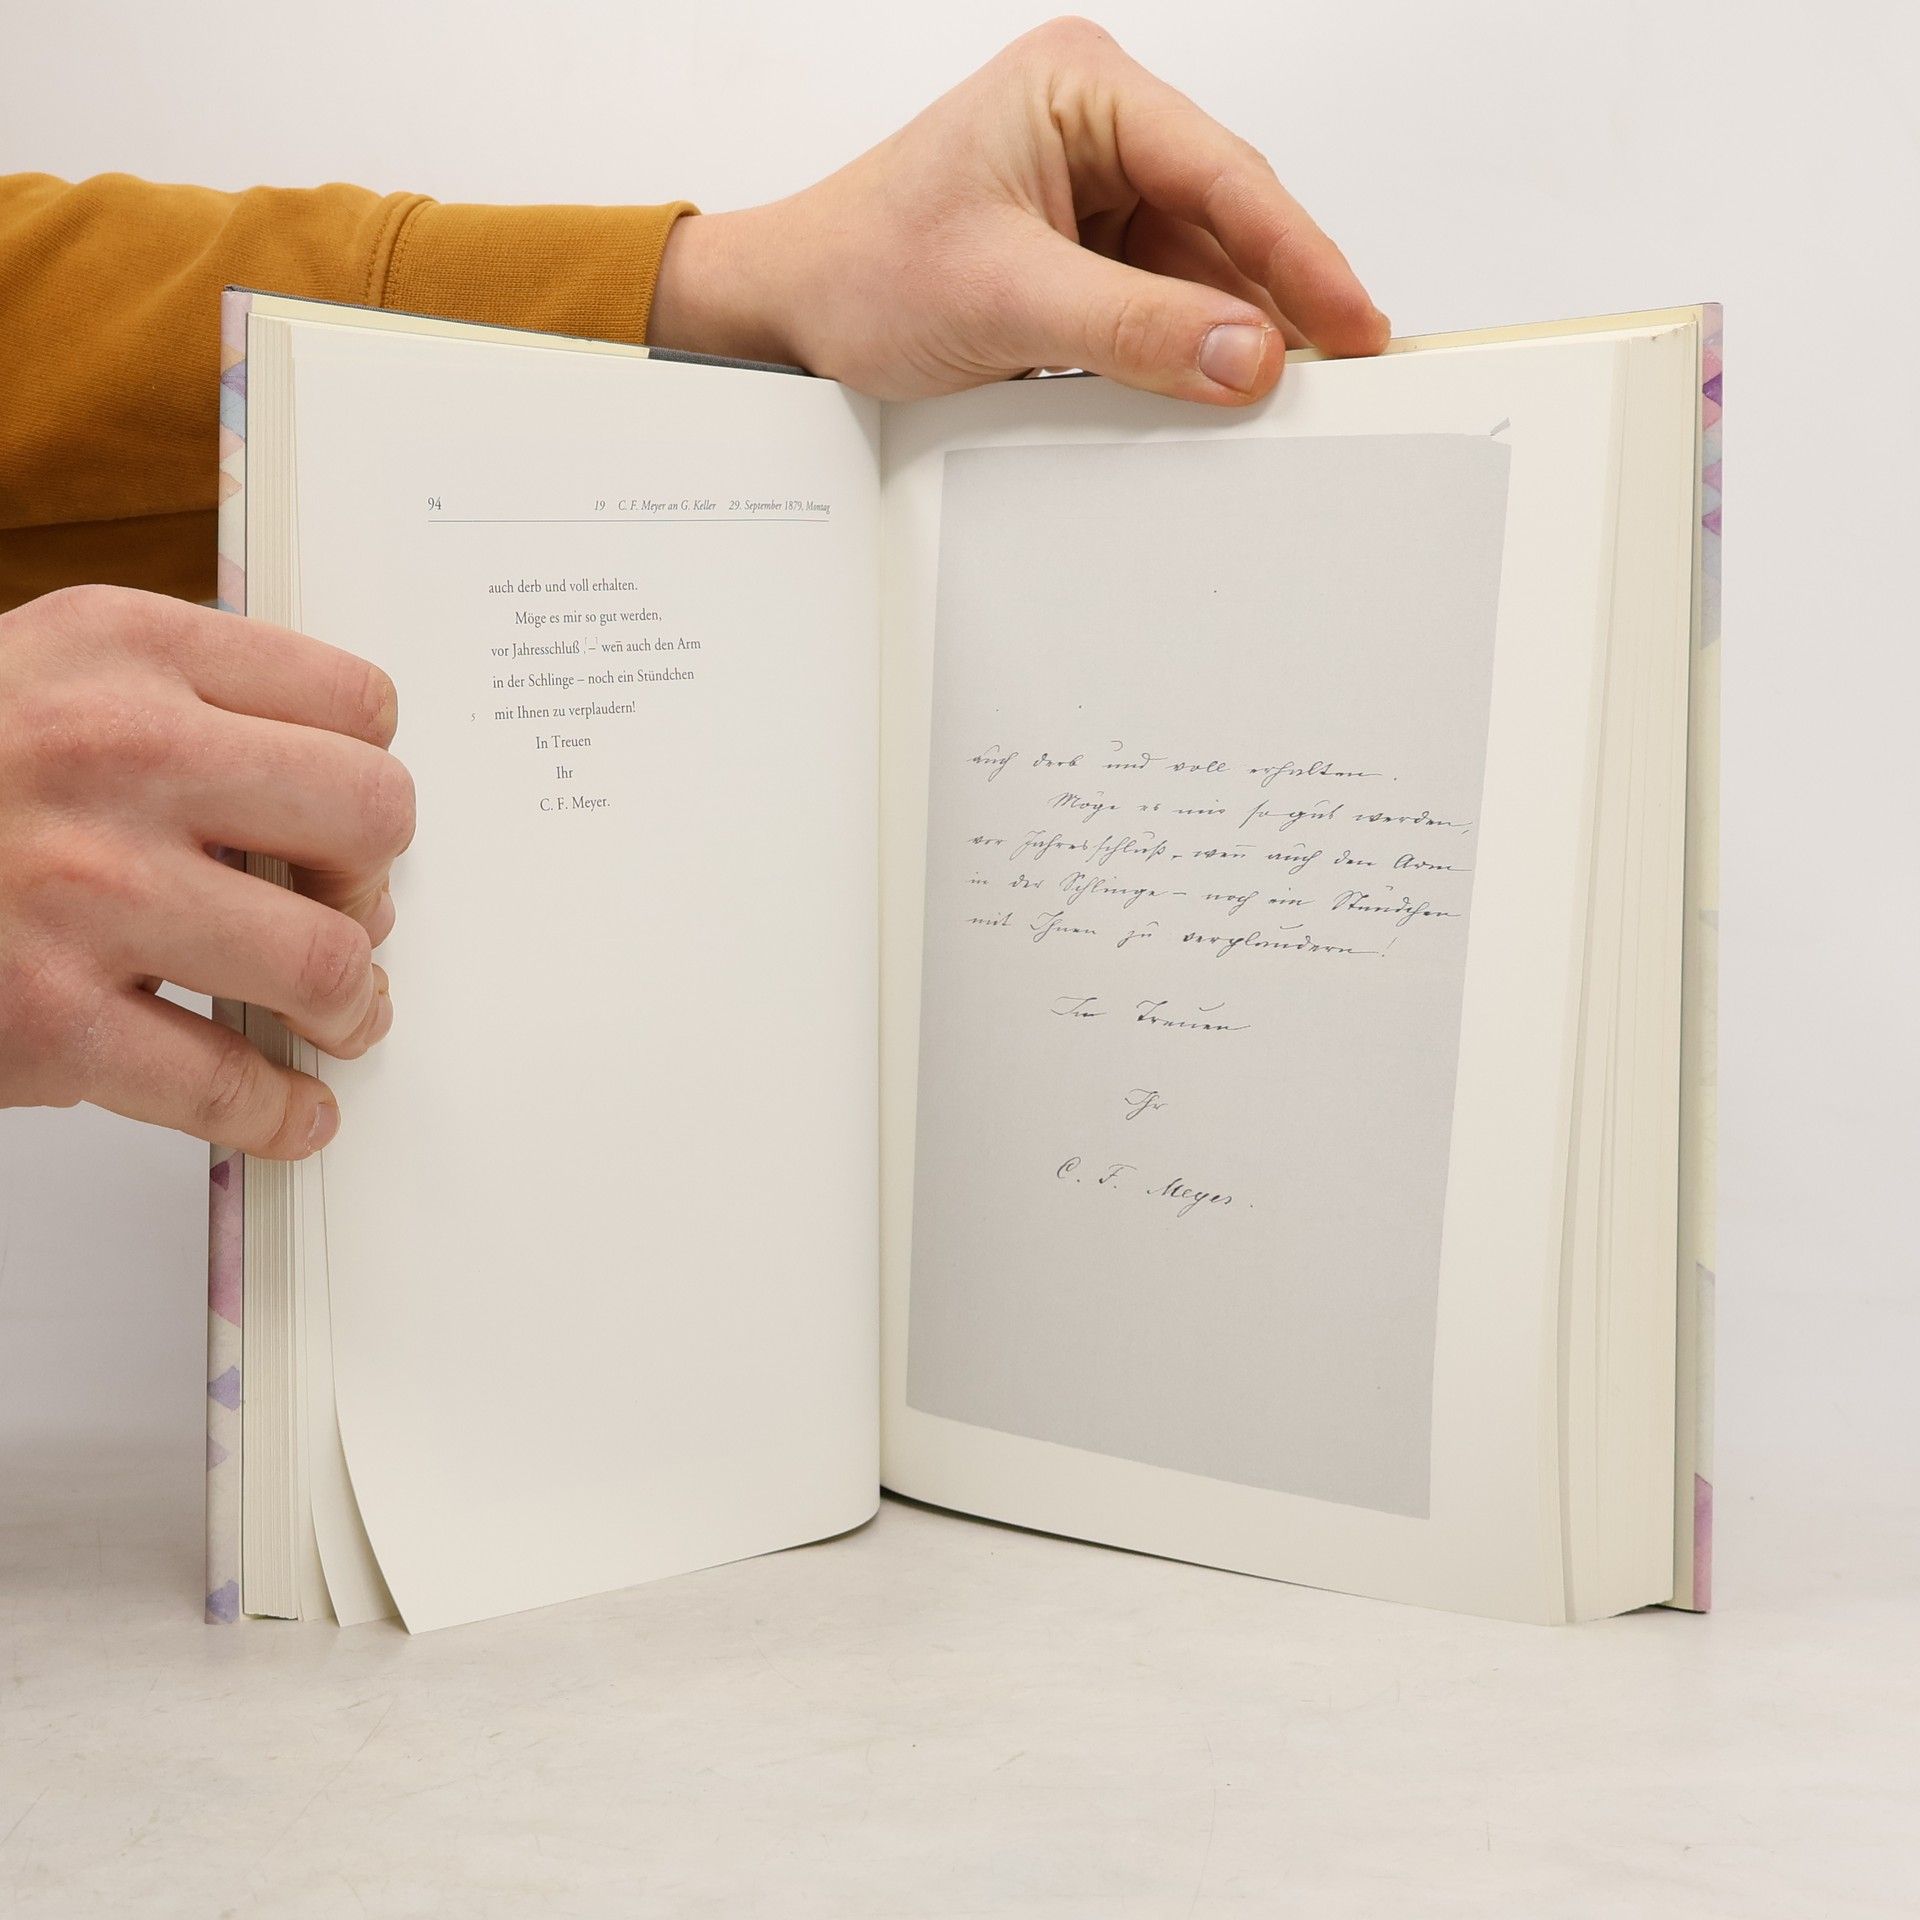 94 19 C. F. Meyer an G. Keller 29. September 1879, Montag
auch derb und voll erhalten.
Möge es mir so gut werden,
vor Jahresschluß [–] weñ auch den Arm
in der Schlinge – noch ein Stündchen
5 mit Ihnen zu verplaudern!
In Treuen
Ihr
C. F. Meyer.
auch derb und voll erhalten.
Möge es mir so gut werden,
vor Jahresschluß – weñ auch den Arm
in der Schlinge – noch ein Stündchen
mit Ihnen zu verplaudern!
In Treuen
Ihr
C. F. Meyer.